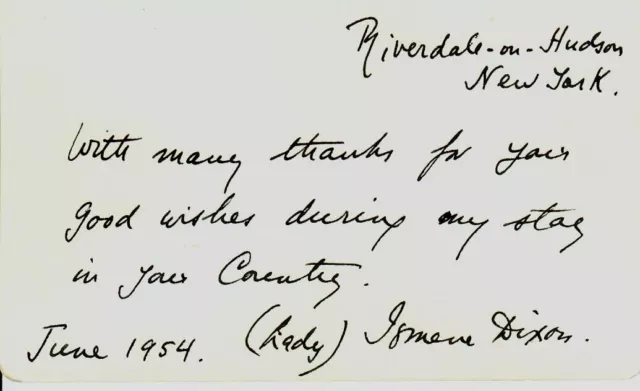 Riverdale-on-Hudson
New York.
With many thanks for your
good wishes during my stay
in your Country.
June 1954. (Lady) Ismene Dixon.